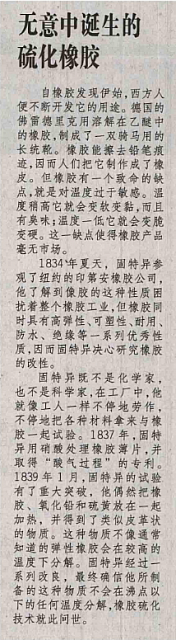 无意中诞生的
硫化橡胶
自橡胶发现伊始,西方人
便不断开发它的用途。德国的
佛雷德里克用溶解在乙醚中
的橡胶,制成了一双骑马用的
长统靴。橡胶能擦去铅笔痕
迹,因而人们把它制作成了橡
皮。但橡胶有一个致命的缺
点,就是对温度过于敏感。温
度稍高它就会变软变黏,而且
有臭味;温度一低它就会变脆
变硬。这一缺点使得橡胶产品
毫无市场。
1834年夏天,固特异参
观了纽约的印第安橡胶公司,
他了解到橡胶的这种性质困
扰着整个橡胶工业,但橡胶同
时具有高弹性、可塑性、耐用、
防水、绝缘等一系列优秀性
质,因而固特异决心研究橡胶
的改性。
固特异既不是化学家,
也不是科学家,在工厂中,他
就像工人一样不停地劳作,
不停地把各种材料拿来与橡
胶一起试验。1837年,固特
异用硝酸处理橡胶薄片,并
取得“酸气过程”的专利。
1839年1月,固特异的试验
有了重大突破,他偶然把橡
胶、氧化铅和硫黄放在一起
加热,并得到了类似皮革状
的物质。这种物质不像通常
知道的弹性橡胶会在较高的
温度下分解。固特异经过一
系列改良,最终确信他所制
备的这种物质不会在沸点以
下的任何温度分解,橡胶硫化
技术就此问世。